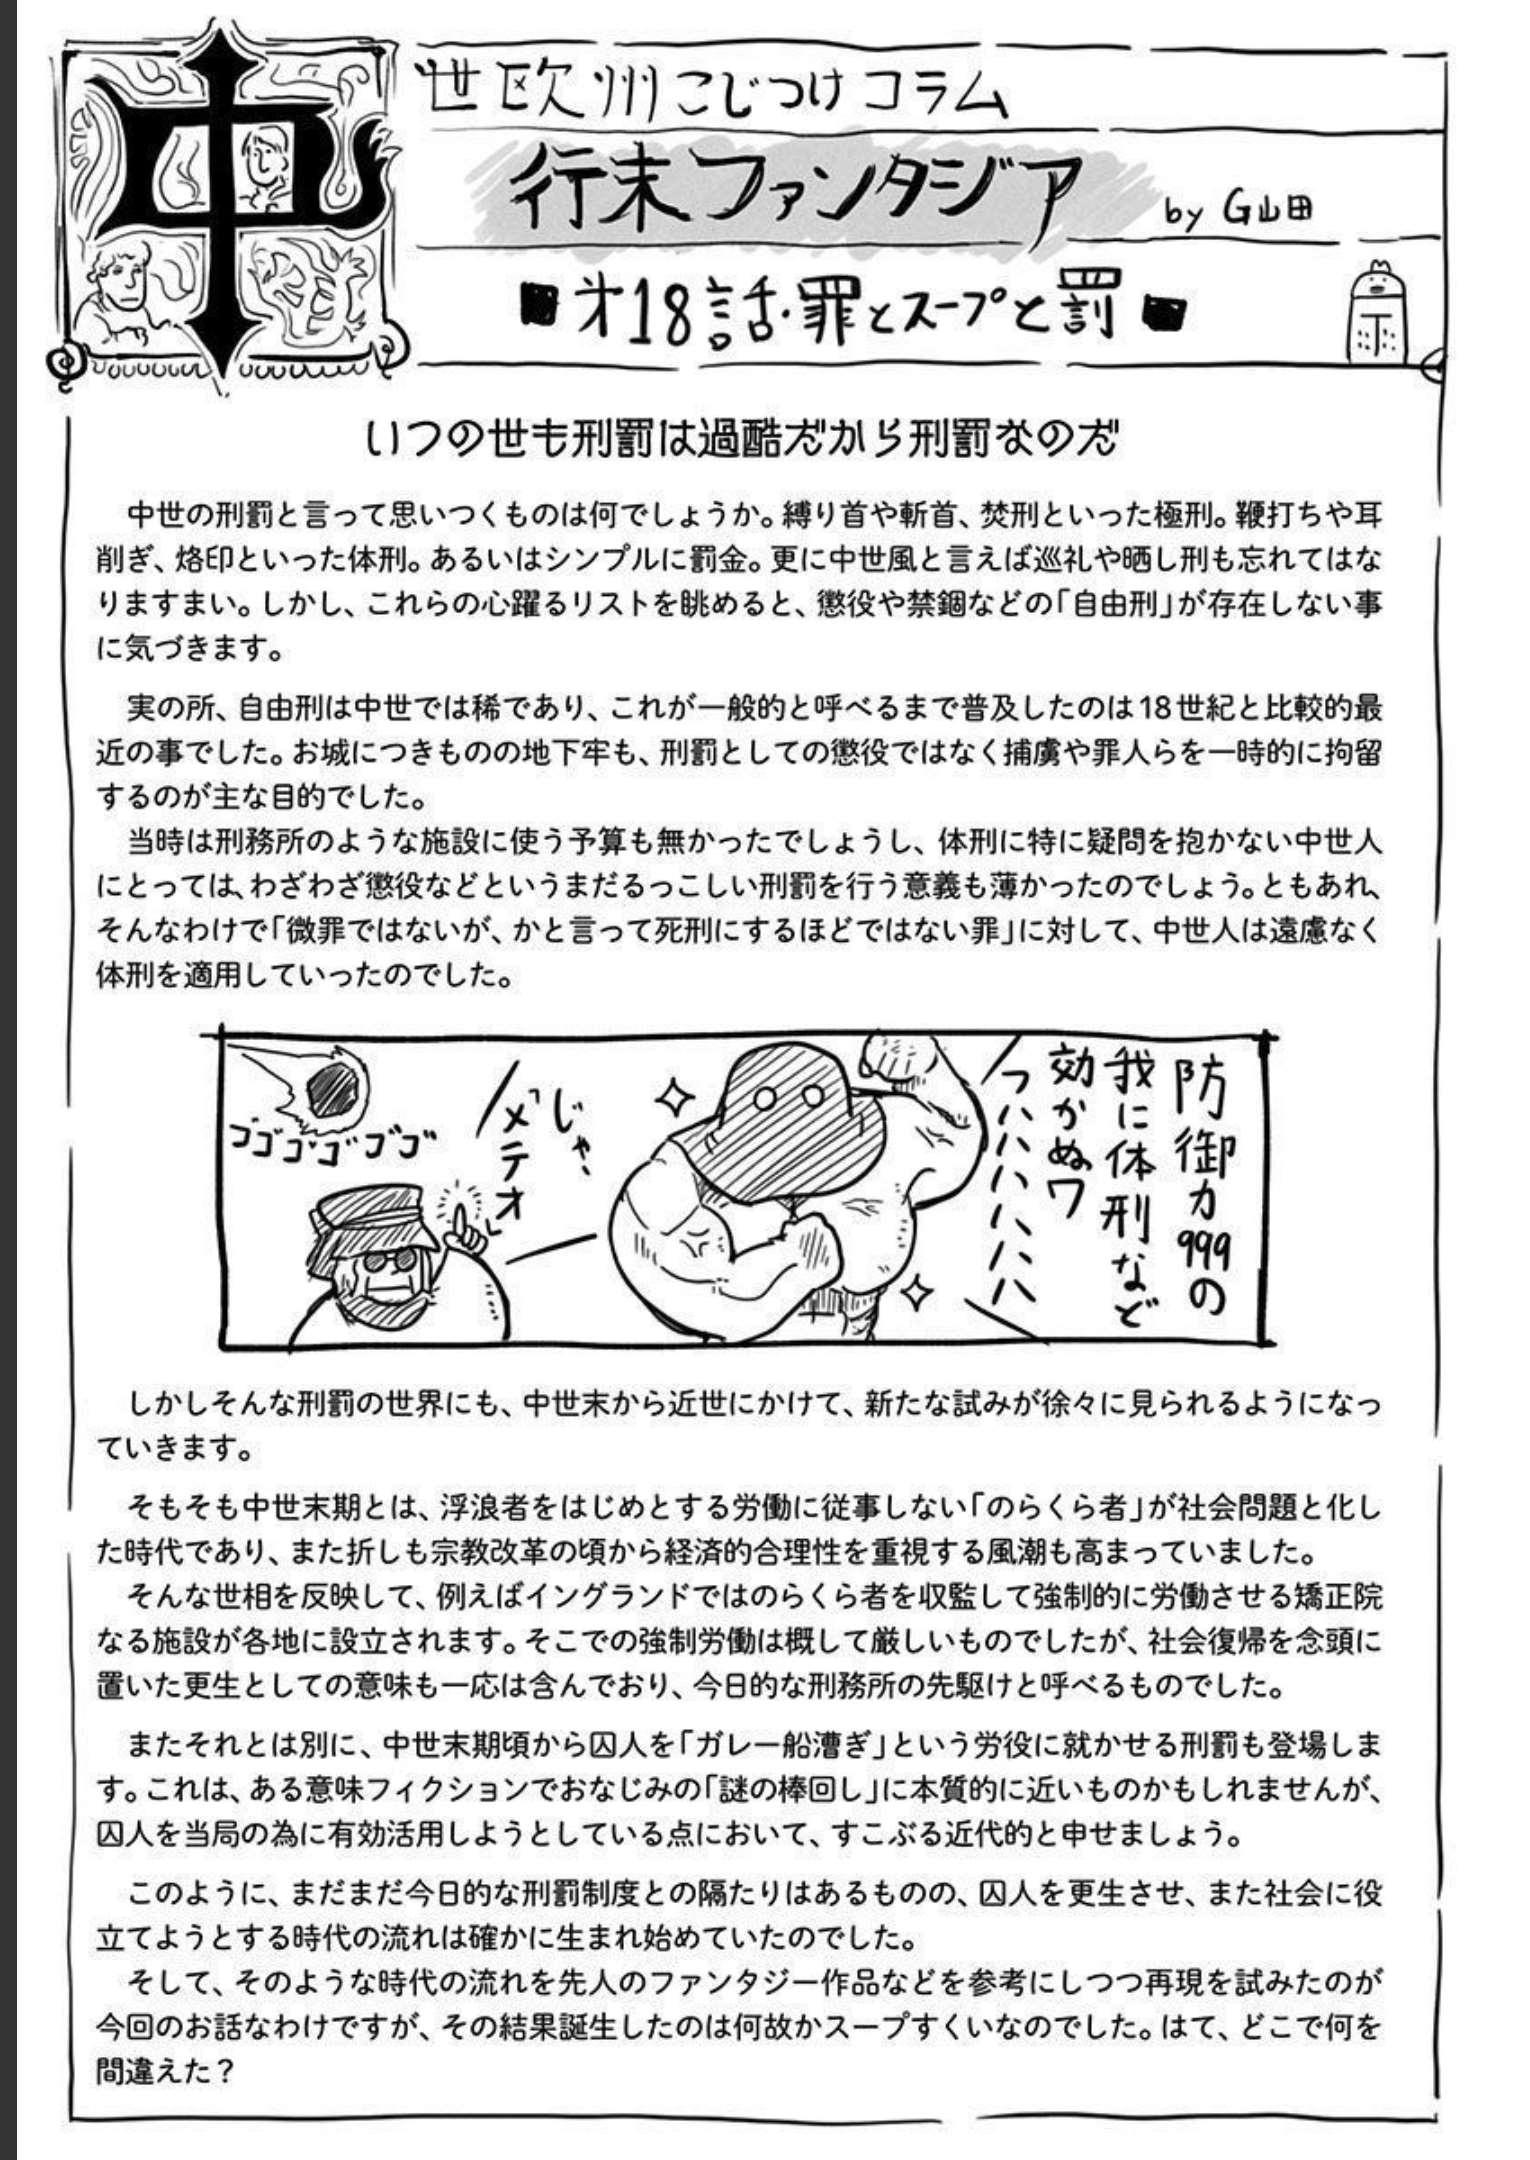 中世欧州こじつけコラム
行末ファンタジア by G山田
■才18話・罪とスープと罰■
いつの世も刑罰は過酷だから刑罰なのだ
中世の刑罰と言って思いつくものは何でしょうか。縛り首や斬首、焚刑といった極刑。鞭打ちや耳
削ぎ、烙印といった体刑。あるいはシンプルに罰金。更に中世風と言えば巡礼や晒し刑も忘れてはな
りますまい。しかし、これらの心躍るリストを眺めると、懲役や禁錮などの「自由刑」が存在しない事
に気づきます。
実の所、自由刑は中世では稀であり、これが一般的と呼べるまで普及したのは18世紀と比較的最
近の事でした。お城につきものの地下牢も、刑罰としての懲役ではなく捕虜や罪人らを一時的に拘留
するのが主な目的でした。
当時は刑務所のような施設に使う予算も無かったでしょうし、体刑に特に疑問を抱かない中世人
にとっては、わざわざ懲役などというまだるっこしい刑罰を行う意義も薄かったのでしょう。ともあれ、
そんなわけで「微罪ではないが、かと言って死刑にするほどではない罪」に対して、中世人は遠慮なく
体刑を適用していったのでした。
防御力999の
我に体刑など
効かぬワ
フハハハハハハハ
じゃ、
「メテオ」
ゴゴゴゴゴゴ
しかしそんな刑罰の世界にも、中世末から近世にかけて、新たな試みが徐々に見られるようになっ
ていきます。
そもそも中世末期とは、浮浪者をはじめとする労働に従事しない「のらくら者」が社会問題と化し
た時代であり、また折しも宗教改革の頃から経済的合理性を重視する風潮も高まっていました。
そんな世相を反映して、例えばイングランドではのらくら者を収監して強制的に労働させる矯正院
なる施設が各地に設立されます。そこでの強制労働は概して厳しいものでしたが、社会復帰を念頭に
置いた更生としての意味も一応は含んでおり、今日的な刑務所の先駆けと呼べるものでした。
またそれとは別に、中世末期頃から囚人を「ガレー船漕ぎ」という労役に就かせる刑罰も登場しま
す。これは、ある意味フィクションでおなじみの「謎の棒回し」に本質的に近いものかもしれませんが、
囚人を当局の為に有効活用しようとしている点において、すこぶる近代的と申せましょう。
このように、まだまだ今日的な刑罰制度との隔たりはあるものの、囚人を更生させ、また社会に役
立てようとする時代の流れは確かに生まれ始めていたのでした。
そして、そのような時代の流れを先人のファンタジー作品などを参考にしつつ再現を試みたのが
今回のお話なわけですが、その結果誕生したのは何故かスープすくいなのでした。はて、どこで何を
間違えた？